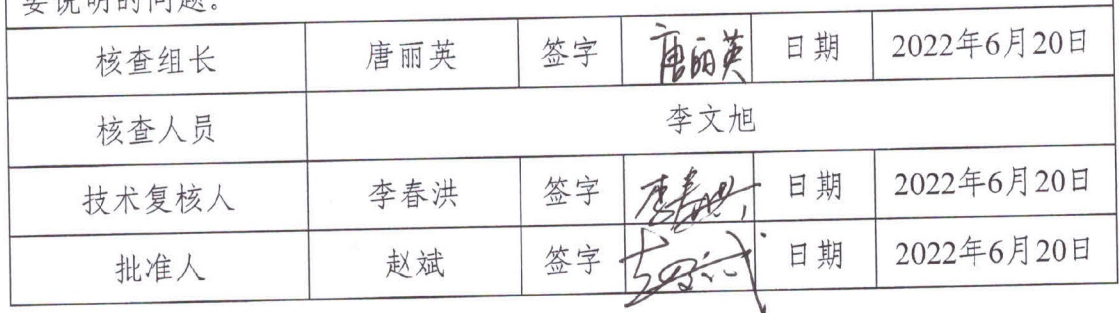 要说明的问题。
核查组长 唐丽英 签字 唐丽英 日期 2022年6月20日
核查人员 李文旭
技术复核人 李春洪 签字 李春洪 日期 2022年6月20日
批准人 赵斌 签字 赵斌 日期 2022年6月20日